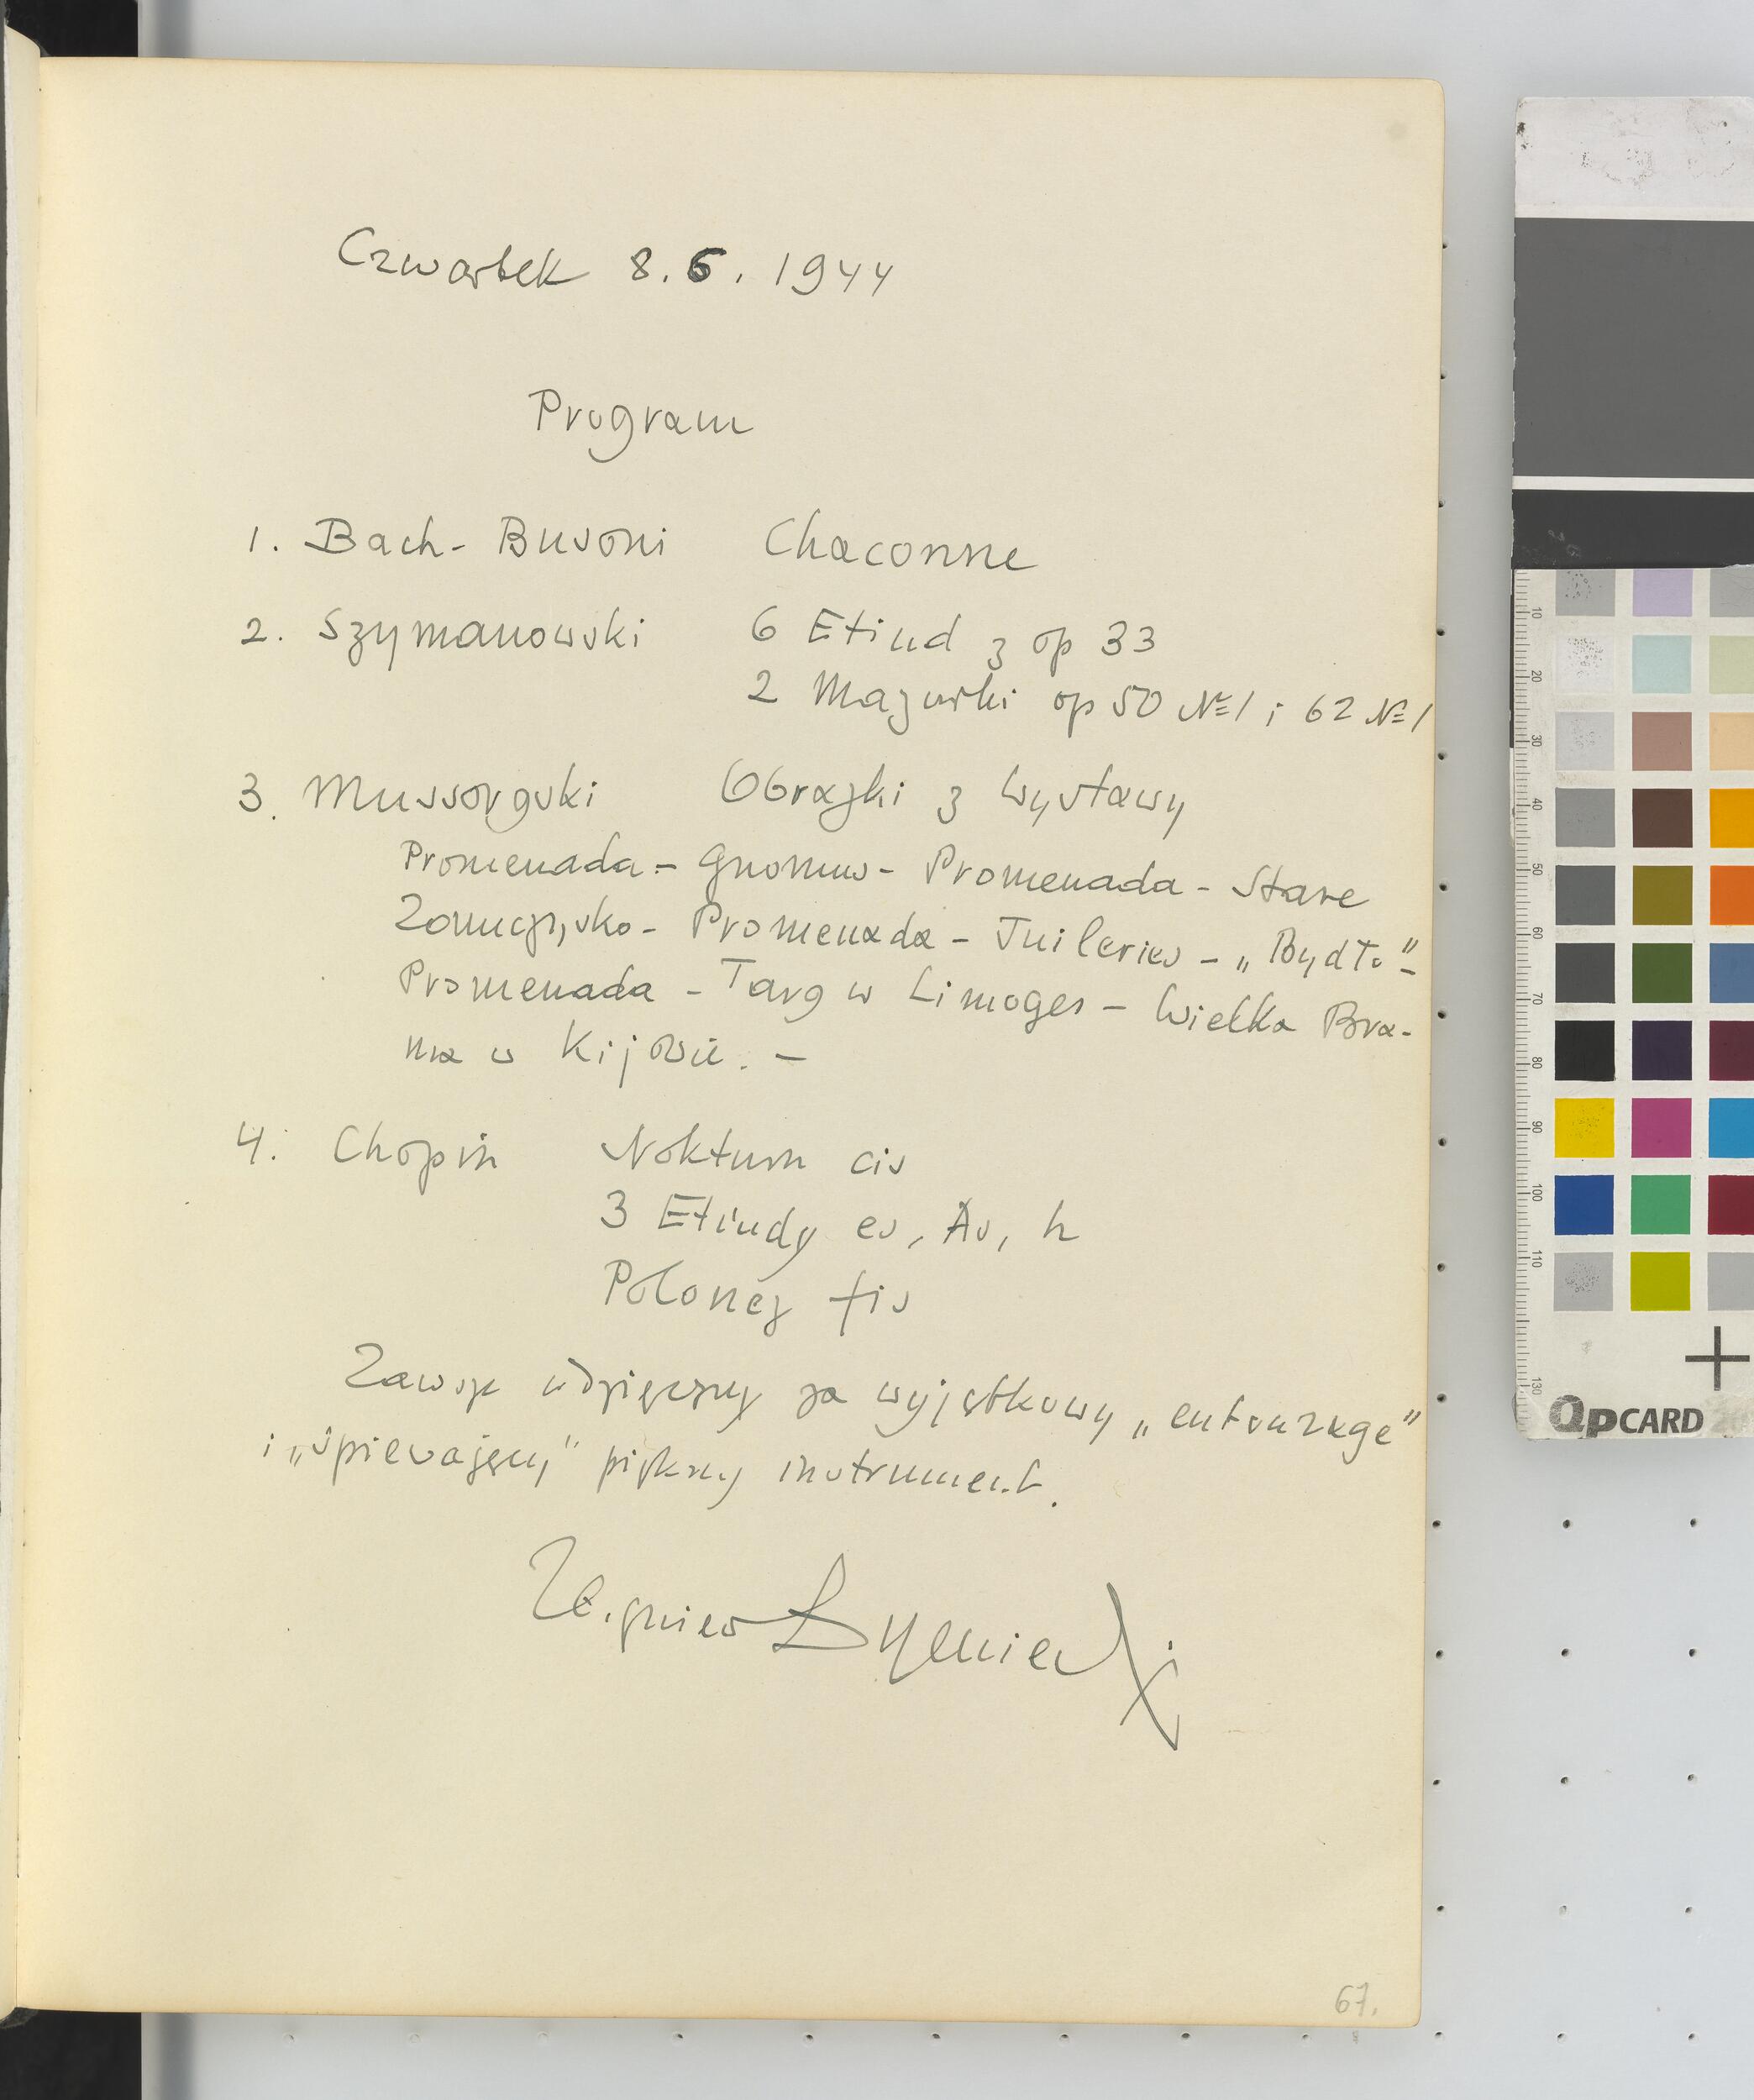 Czwartek 8. 6. 1944
Program
1. Bach - Busoni Chaconne
2. Szymanowski 6 Etiud z op 33
2 Mazurki op 50 №1 i 62 №1
3. Mussorgski Obrazki z Wystawy
Promenada - Gnomus - Promenada - Stare
Zamczysko - Promenada - Tuileries - „Bydło" -
Promenada - Targ w Limoges - Wielka Bra-
ma w Kijowie. -
4. Chopin Nokturn cis
3 Etiudy es, As, h
Polonez fis
Zawsze wdzięczny za wyjątkowy „entourage"
i „śpiewający" piękny instrument.
Zbigniew Dymmek
67.
10
20
30
40
50
60
70
80
90
100
110
130
QPCARD 20